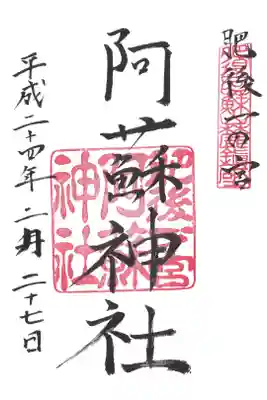 肥後一の宮
阿蘇神社
平成二十四年二月二十七日